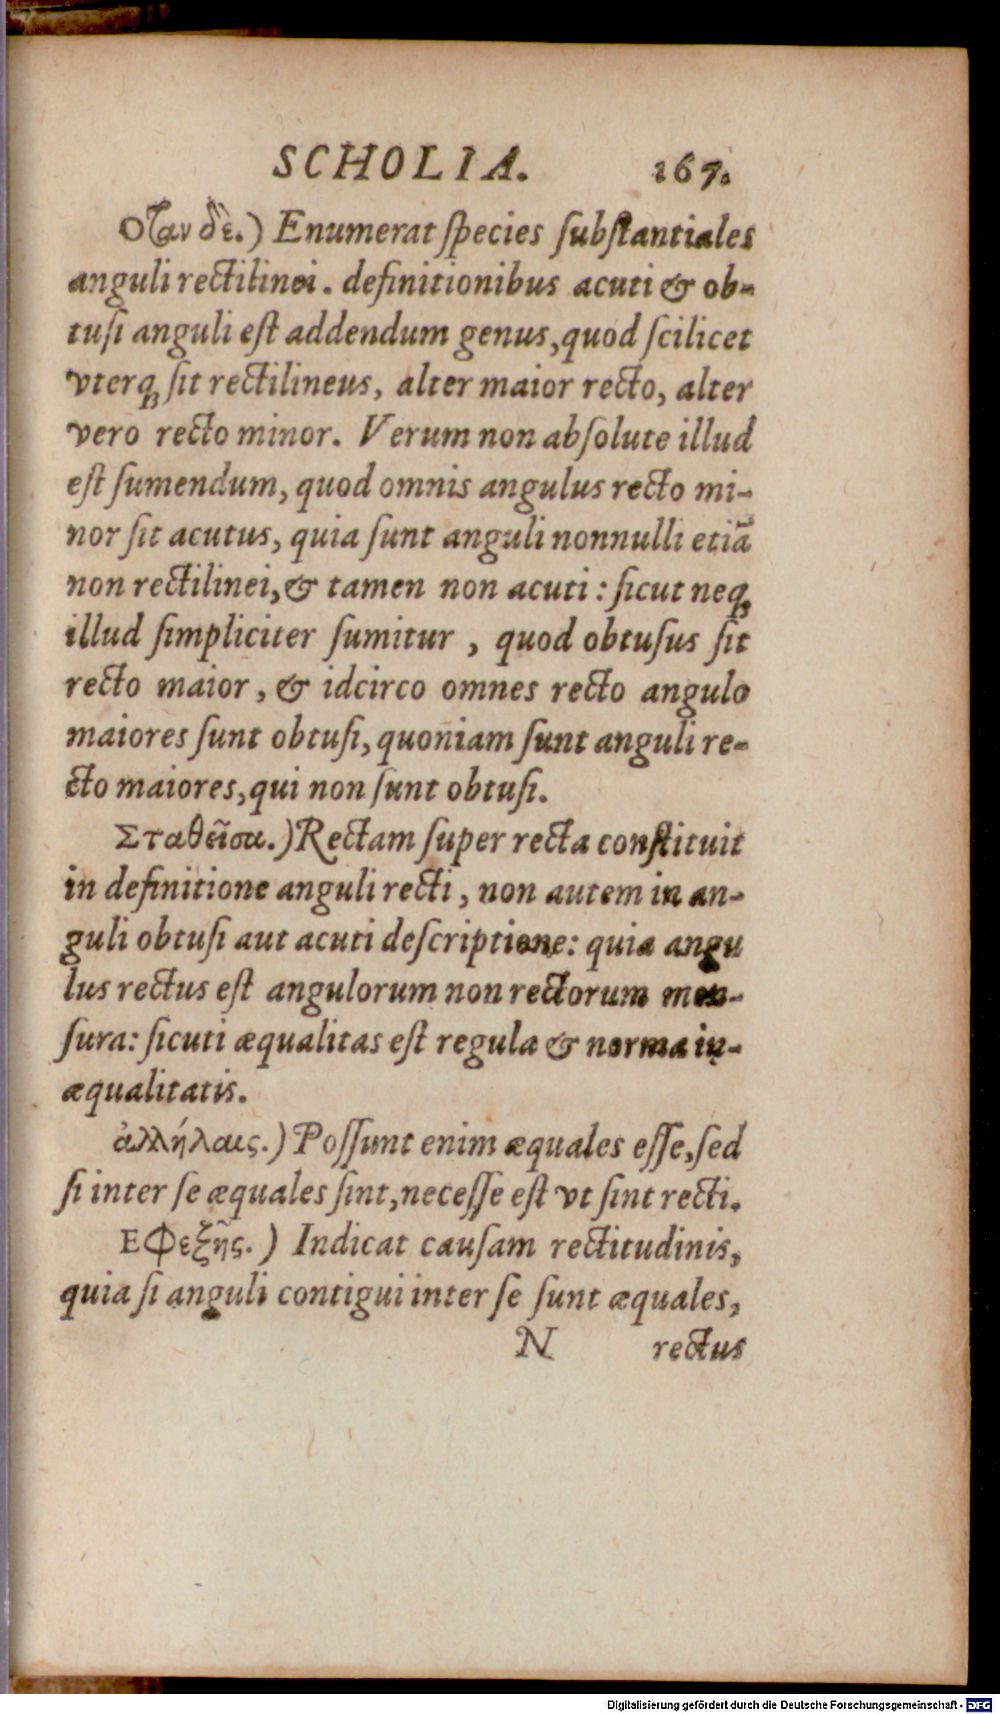 SCHOLIA. 167.
Οταν δὲ.) Enumerat ſpecies ſubſtantiales
anguli rectilinei. definitionibus acuti & ob-
tuſi anguli eſt addendum genus, quod ſcilicet
vterq; ſit rectilineus, alter maior recto, alter
vero recto minor. Verum non abſolute illud
eſt ſumendum, quod omnis angulus recto mi-
nor ſit acutus, quia ſunt anguli nonnulli etiā
non rectilinei, & tamen non acuti: ſicut neq;
illud ſimpliciter ſumitur, quod obtuſus ſit
recto maior, & idcirco omnes recto angulo
maiores ſunt obtuſi, quoniam ſunt anguli re-
cto maiores, qui non ſunt obtuſi.
Σταθεῖσα.) Rectam ſuper recta conſtituit
in definitione anguli recti, non autem in an-
guli obtuſi aut acuti deſcriptione: quia angu
lus rectus eſt angulorum non rectorum men-
ſura: ſicuti æqualitas eſt regula & norma in-
æqualitatis.
ἀλλήλαις.) Poſſunt enim æquales eſſe, ſed
ſi inter ſe æquales ſint, neceſſe eſt vt ſint recti.
Εφεξῆς.) Indicat cauſam rectitudinis,
quia ſi anguli contigui inter ſe ſunt æquales,
N rectus
Digitalisierung gefördert durch die Deutsche Forschungsgemeinschaft - DFG